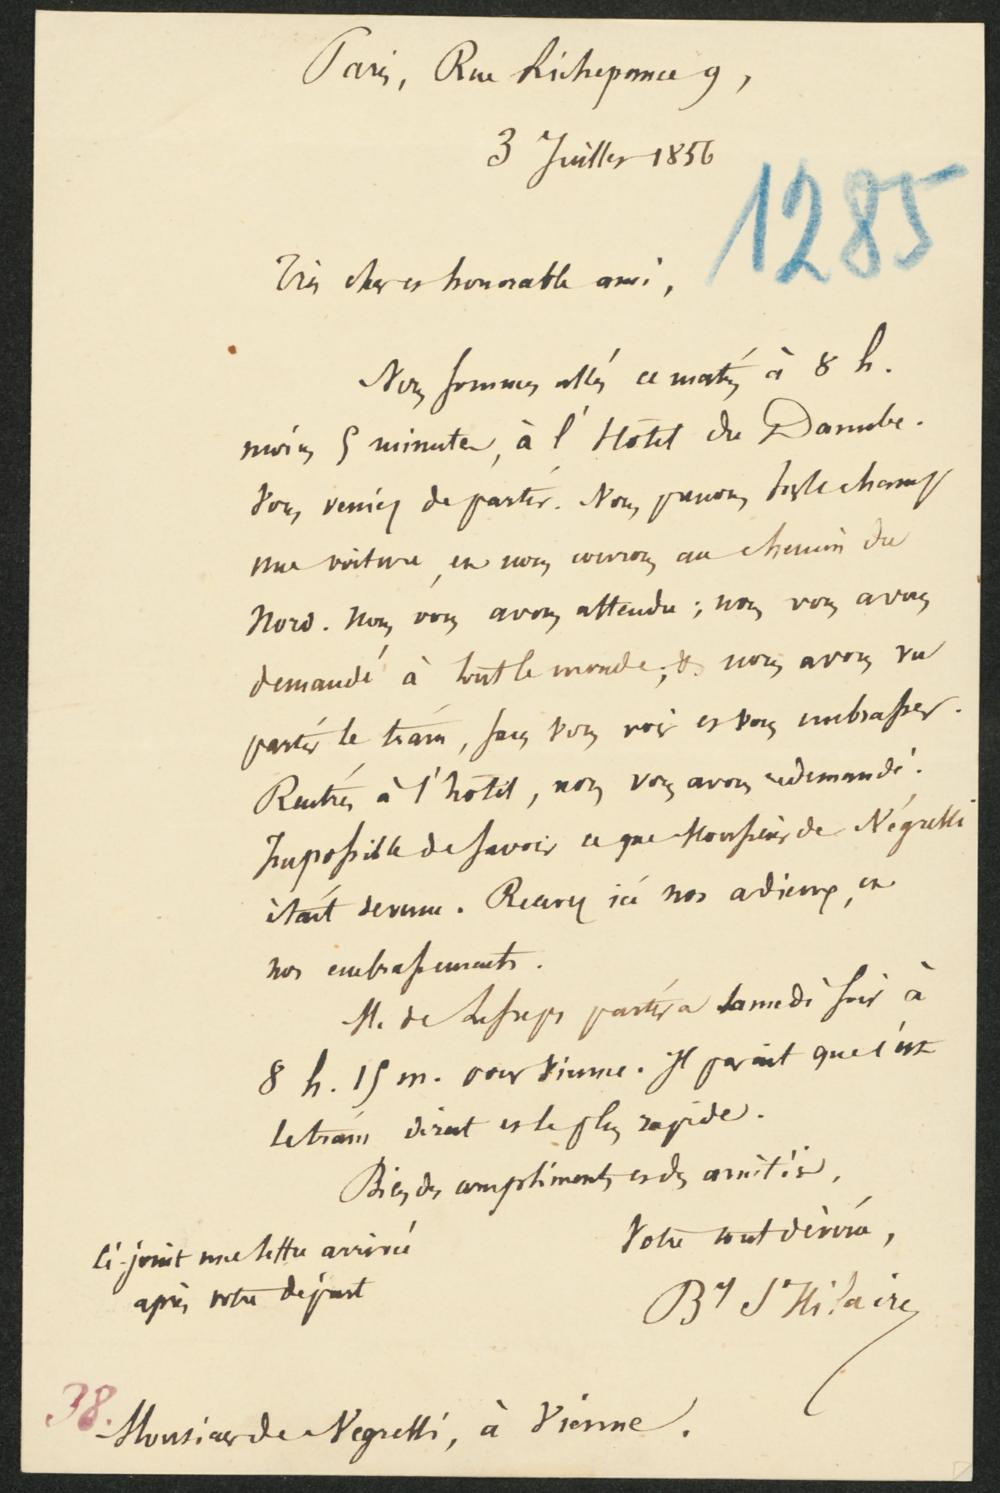 Paris, Rue Richepance 9,
3 Juillet 1856
1285
Très cher et honorable ami,
Nous sommes allés ce matin à 8 h.
moins 5 minutes, à l'Hôtel du Danube.
Vous veniez de partir. Nous prenons sur le champ
une voiture, et nous courons au chemin du
Nord. Nous vous avons attendu; nous vous avons
demandé à tout le monde; & nous avons vu
partir le train, sans vous voir et vous embrasser.
Rentrés à l'hôtel, nous vous avons redemandé.
Impossible de savoir ce que Monsieur de Négrelli
était devenu. Recevez ici nos adieux, et
nos embrassements.
M. de Lesseps partira samedi soir à
8 h. 15 m. pour Vienne. Il paraît que c'est
le train direct et le plus rapide.
Bien des compliments et des amitiés,
Votre tout dévoué,
By St Hilaire
Ci-joint une lettre arrivée
après votre départ
38.
Monsieur de Negrelli, à Vienne.